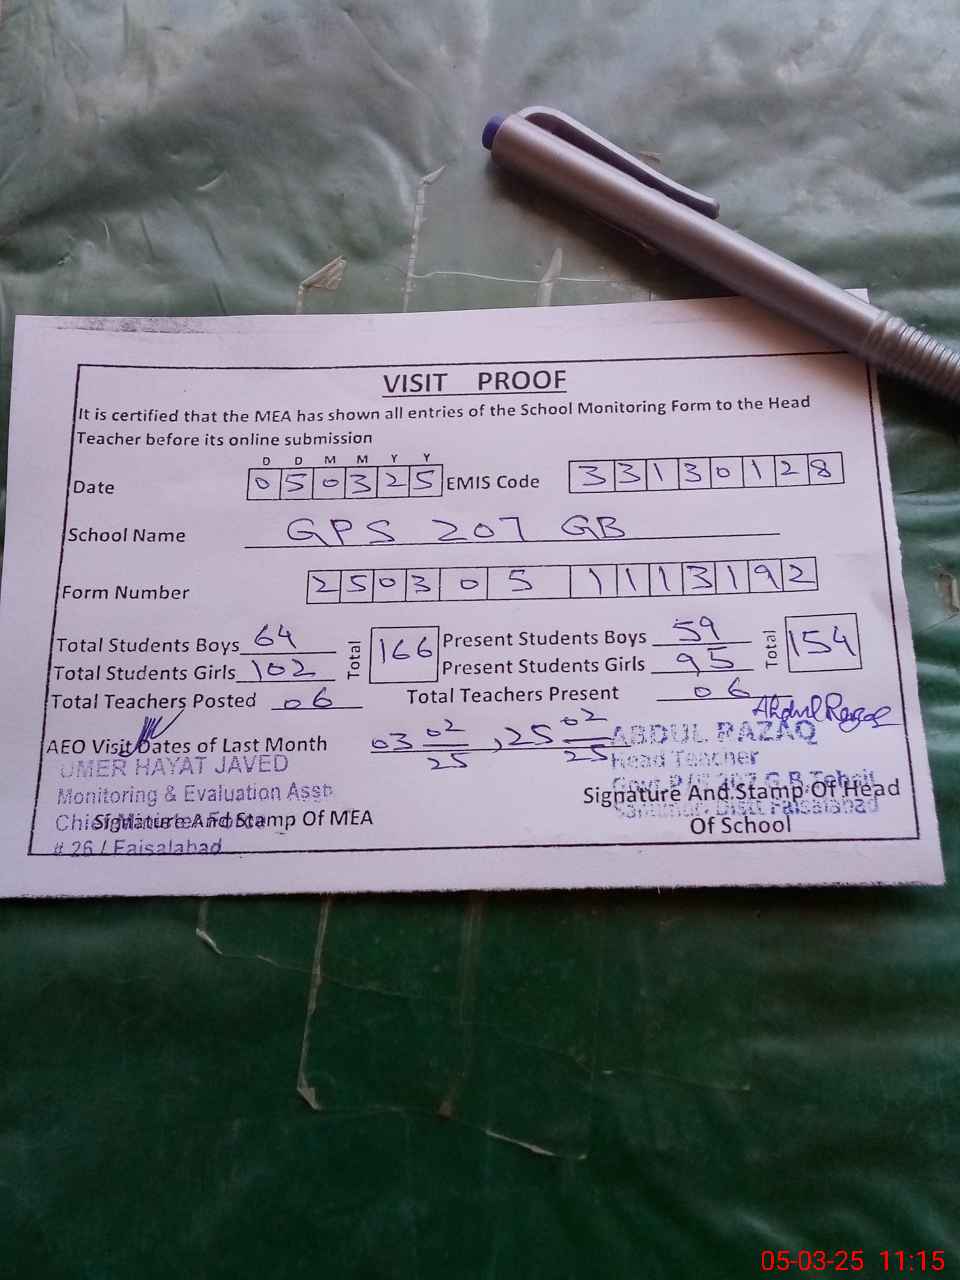 VISIT PROOF
It is certified that the MEA has shown all entries of the School Monitoring Form to the Head
Teacher before its online submission
D D M M Y Y
Date 0 5 0 3 2 5 EMIS Code 3 3 1 3 0 1 2 8
School Name GPS 207 GB
Form Number 2 5 0 3 0 5 1 1 1 3 1 9 2
Total Students Boys 64 Total 166 Present Students Boys 59 Total 154
Total Students Girls 102 Present Students Girls 95
Total Teachers Posted 06 Total Teachers Present 06
AEO Visit Dates of Last Month 03 02/25, 25 02/25
ABDUL RAZAQ
Head Teacher
UMER HAYAT JAVED
Monitoring & Evaluation Asst
Signature And Stamp Of MEA
# 26 / Faisalabad
Signature And Stamp Of Head
Of School
05-03-25 11:15